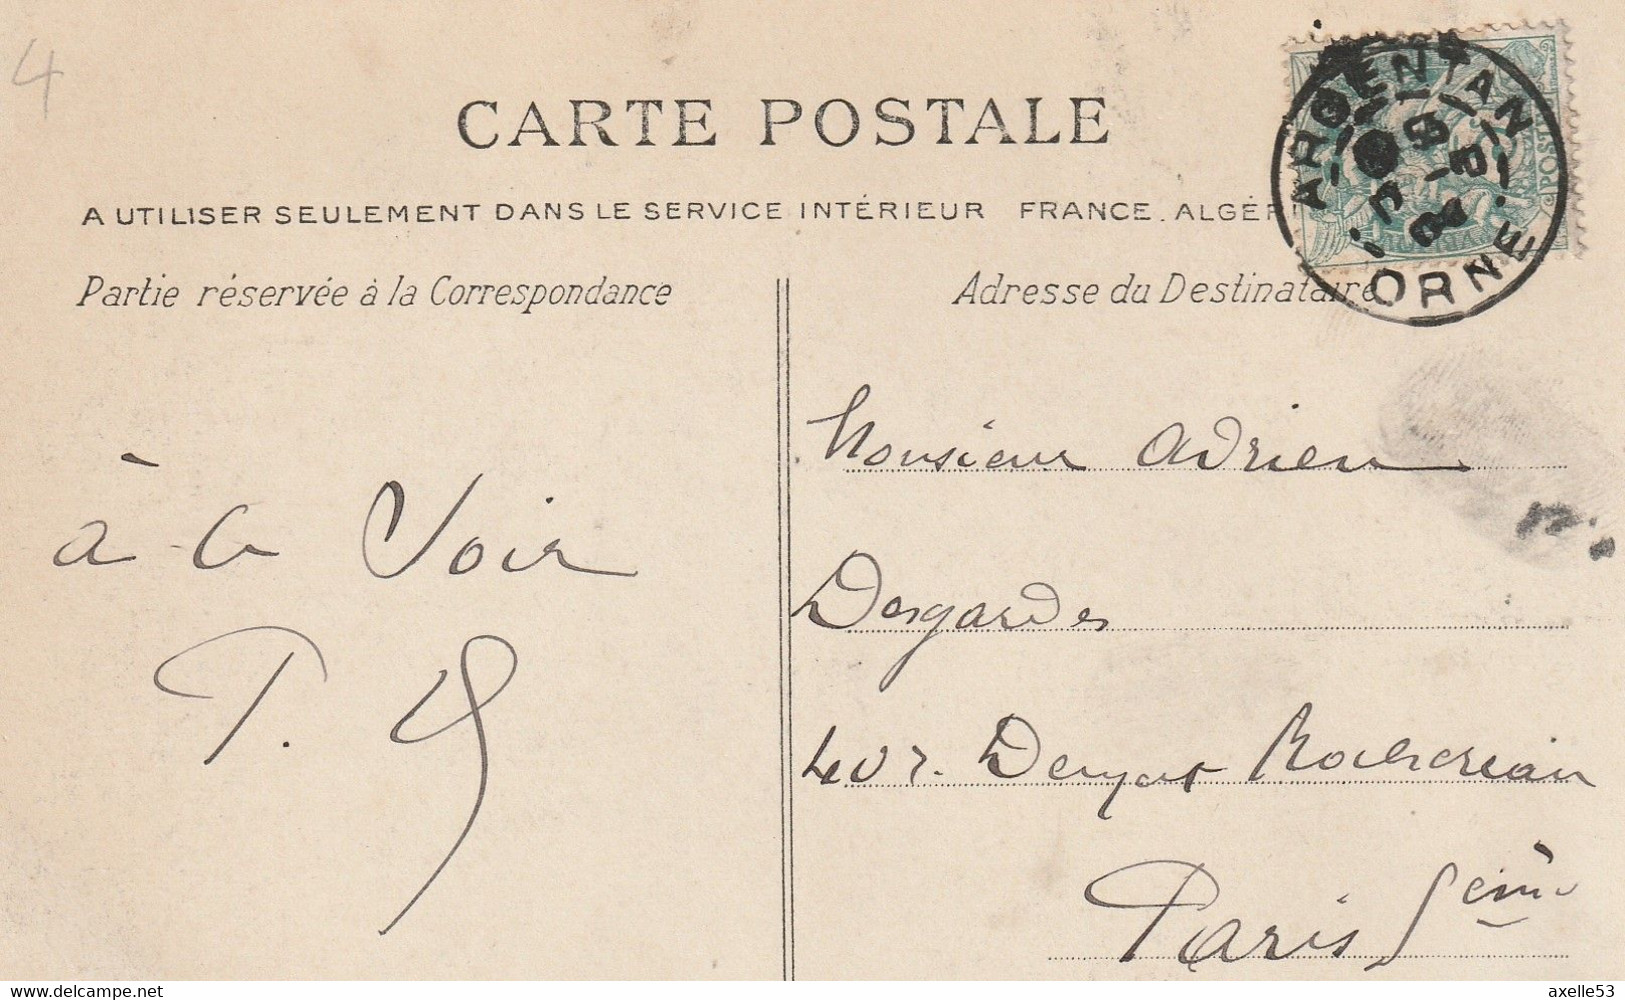 4
CARTE POSTALE
A UTILISER SEULEMENT DANS LE SERVICE INTÉRIEUR FRANCE. ALGÉRI
Partie réservée à la Correspondance
Adresse du Destinataire
ARGENTAN
ORNE
POST
à
Voir
Monsieur Adrien
Desgardes
Rochereau
Paris
delcampe.net
axelle53